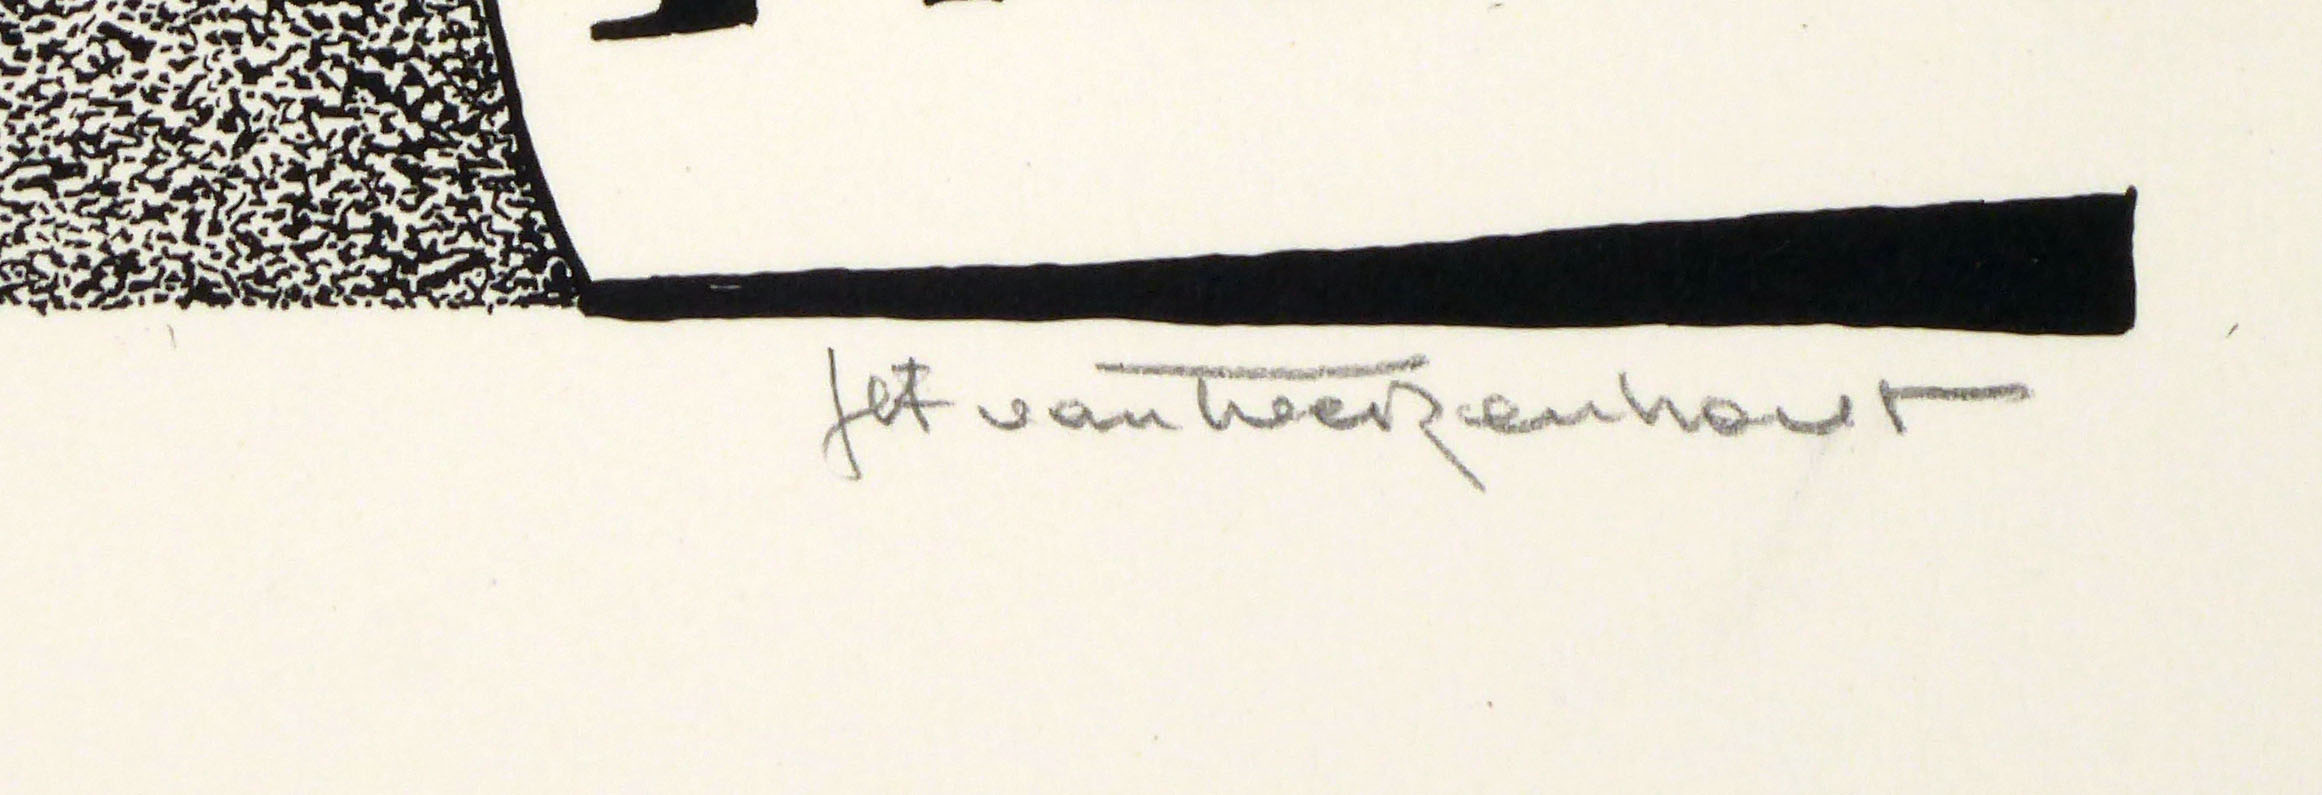 Jet van Heerkenhout